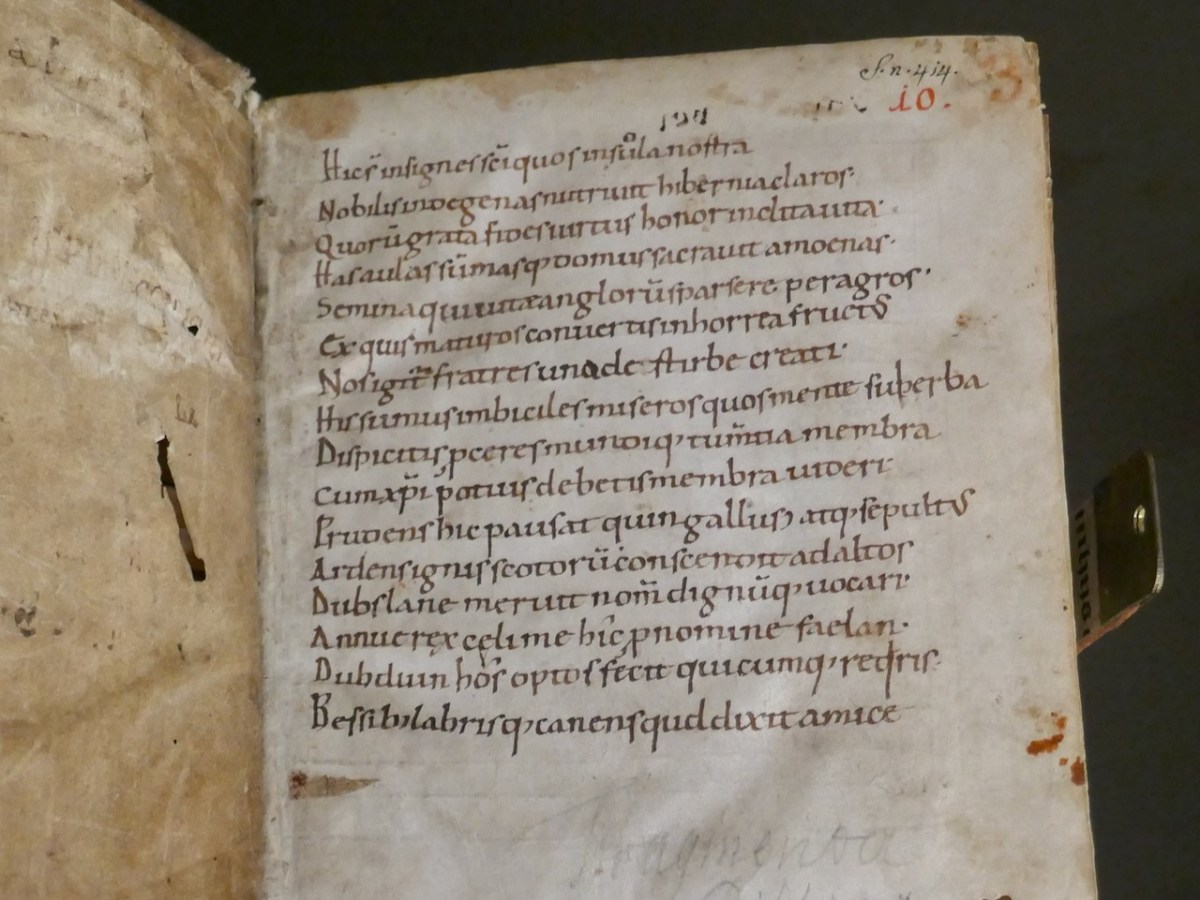 S. n. 414.
10.
Hic sť insignes sc̄i quos insola nostra
Nobilis indegenas nutruit hibernia claros·
Quorū grata fides uirtus honor inclita uita·
Has aulas sūmasq; domus sacrauit amoenas·
Semina qui uitae anglorū sparsere per agros·
Ex quis maturos conuertis in horrea fructus
Nos igitr̄ fratres una de stirbe creati·
His sumus imbiciles miseros quos mente superba
Dispicitis p̲ceres mundiq; tum̄tia membra
Cum xp̄i potuis debetis membra uideri·
Prudens hic pausat quin gallus atq; sepultus
Ardens ignis scotorū conscendit ad altos
Dubslane meruit nom̄ dignūq; uocari·
Annue rex cęli me hic p̲ nomine faelan·
Dubduin hos optos fecit quicumq; reqiris·
Bessib; labrisq; canens qud dixit amice
Fragmenta